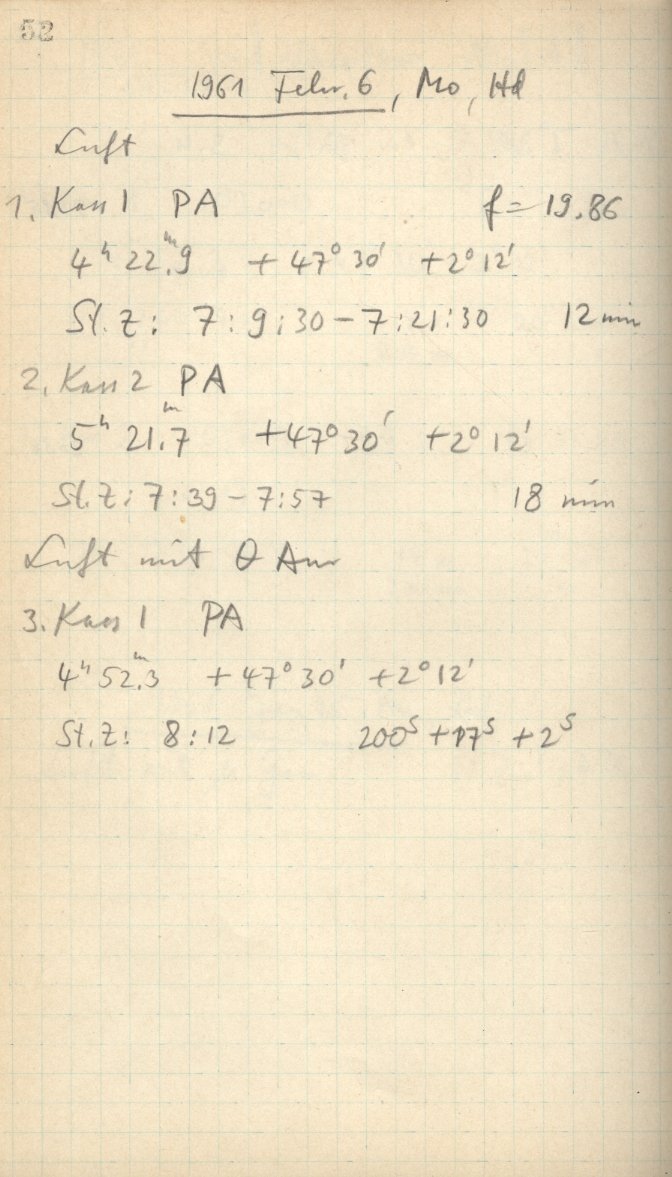 52
1961 Febr. 6, Mo, Hd
Luft
1. Kass 1 PA f = 19.86
4ʰ 22ᵐ.9 + 47° 30' + 2° 12'
St. Z: 7:9:30 – 7:21:30 12 min
2. Kass 2 PA
5ʰ 21ᵐ.7 + 47° 30' + 2° 12'
St. Z: 7:39 – 7:57 18 min
Luft mit θ Aur
3. Kass 1 PA
4ʰ 52ᵐ.3 + 47° 30' + 2° 12'
St. Z: 8:12 200ˢ + 17ˢ + 2ˢ